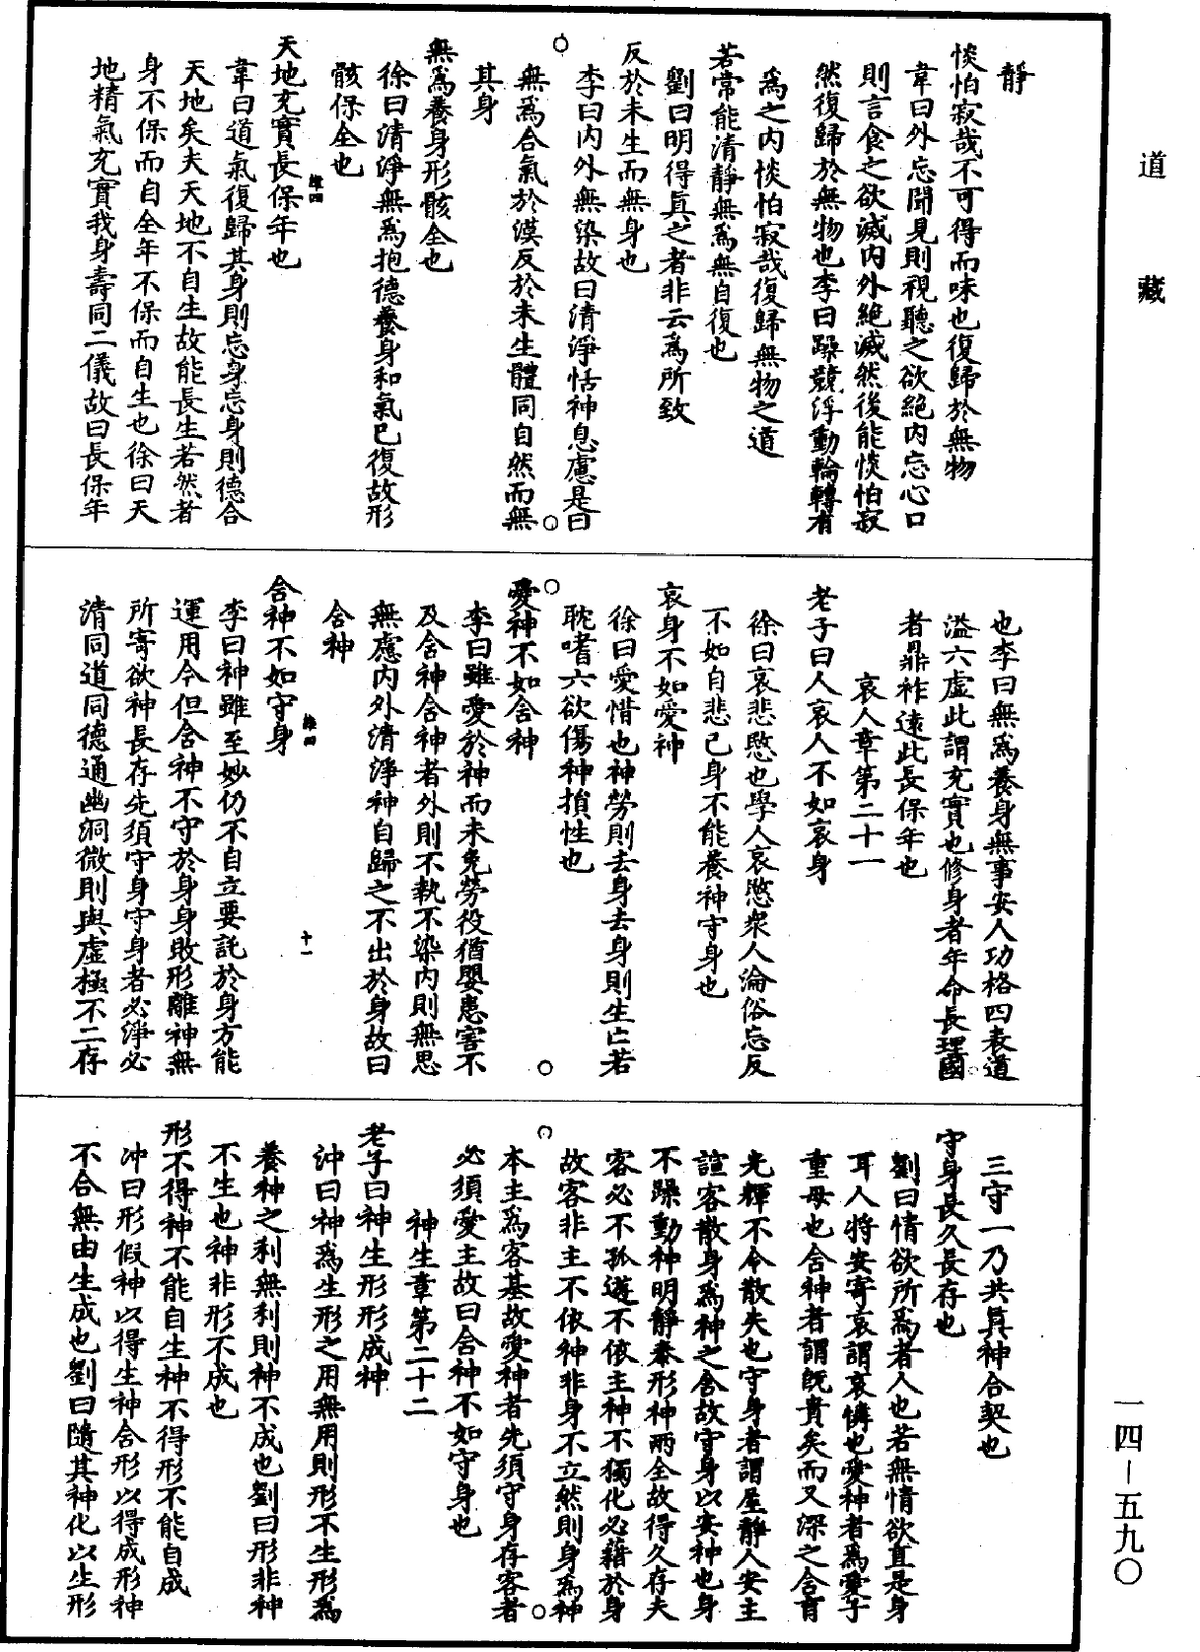 道藏
靜
惔怕寂哉不可得而味也復歸於無物
韋曰外忘聞見則視聽之欲絕內忘心口
則言食之欲滅內外絕滅然後能惔怕寂
然復歸於無物也李曰躁競浮動輪轉有
為之內惔怕寂哉復歸無物之道
若常能清靜無為無自復也
劉曰明得真之者非云為所致
反於未生而無身也
李曰內外無染故曰清淨恬神息慮是曰
無為合氣於漠反於未生體同自然而無
其身
無為養身形骸全也
徐曰清淨無為抱德養身和氣已復故形
骸保全也
天地充實長保年也
韋曰道氣復歸其身則忘身忘身則德合
天地矣夫天地不自生故能長生若然者
身不保而自全年不保而自生也徐曰天
地精氣充實我身壽同二儀故曰長保年
也李曰無為養身無事安人功格四表道
溢六虛此謂充實也修身者年命長理國
者鼎祚遠此長保年也
哀人章第二十一
老子曰人哀人不如哀身
徐曰哀悲愍也學人哀愍眾人淪俗忘反
不如自悲己身不能養神守身也
哀身不如愛神
徐曰愛惜也神勞則去身去身則生亡若
耽嗜六欲傷神損性也
愛神不如舍神
李曰雖愛於神而未免勞役猶嬰患害不
及舍神舍神者外則不執不染內則無思
無慮內外清淨神自歸之不出於身故曰
舍神
舍神不如守身
十一
李曰神雖至妙仍不自立要託於身方能
運用今但舍神不守於身身敗形離神無
所寄欲神長存先須守身守身者必淨必
清同道同德通幽洞微則與虛極不二存
三守一乃共真神合契也
守身長久長存也
劉曰情欲所為者人也若無情欲直是身
耳人將安寄哀謂哀憐也愛神者為愛子
重母也舍神者謂既貴矣而又深之含育
光輝不令散失也守身者謂屋靜人安主
諠客散身為神之舍故守身以安神也身
不躁動神明靜泰形神兩全故得久存夫
客必不孤遊不依主神不獨化必藉於身
故客非主不依神非身不立然則身為神
本主為客基故愛神者先須守身存客者
必須愛主故曰舍神不如守身也
神生章第二十二
老子曰神生形形成神
沖曰神為生形之用無用則形不生形為
養神之利無利則神不成也劉曰形非神
不生也神非形不成也
形不得神不能自生神不得形不能自成
沖曰形假神以得生神舍形以得成形神
不合無由生成也劉曰隨其神化以生形
一四—五九〇